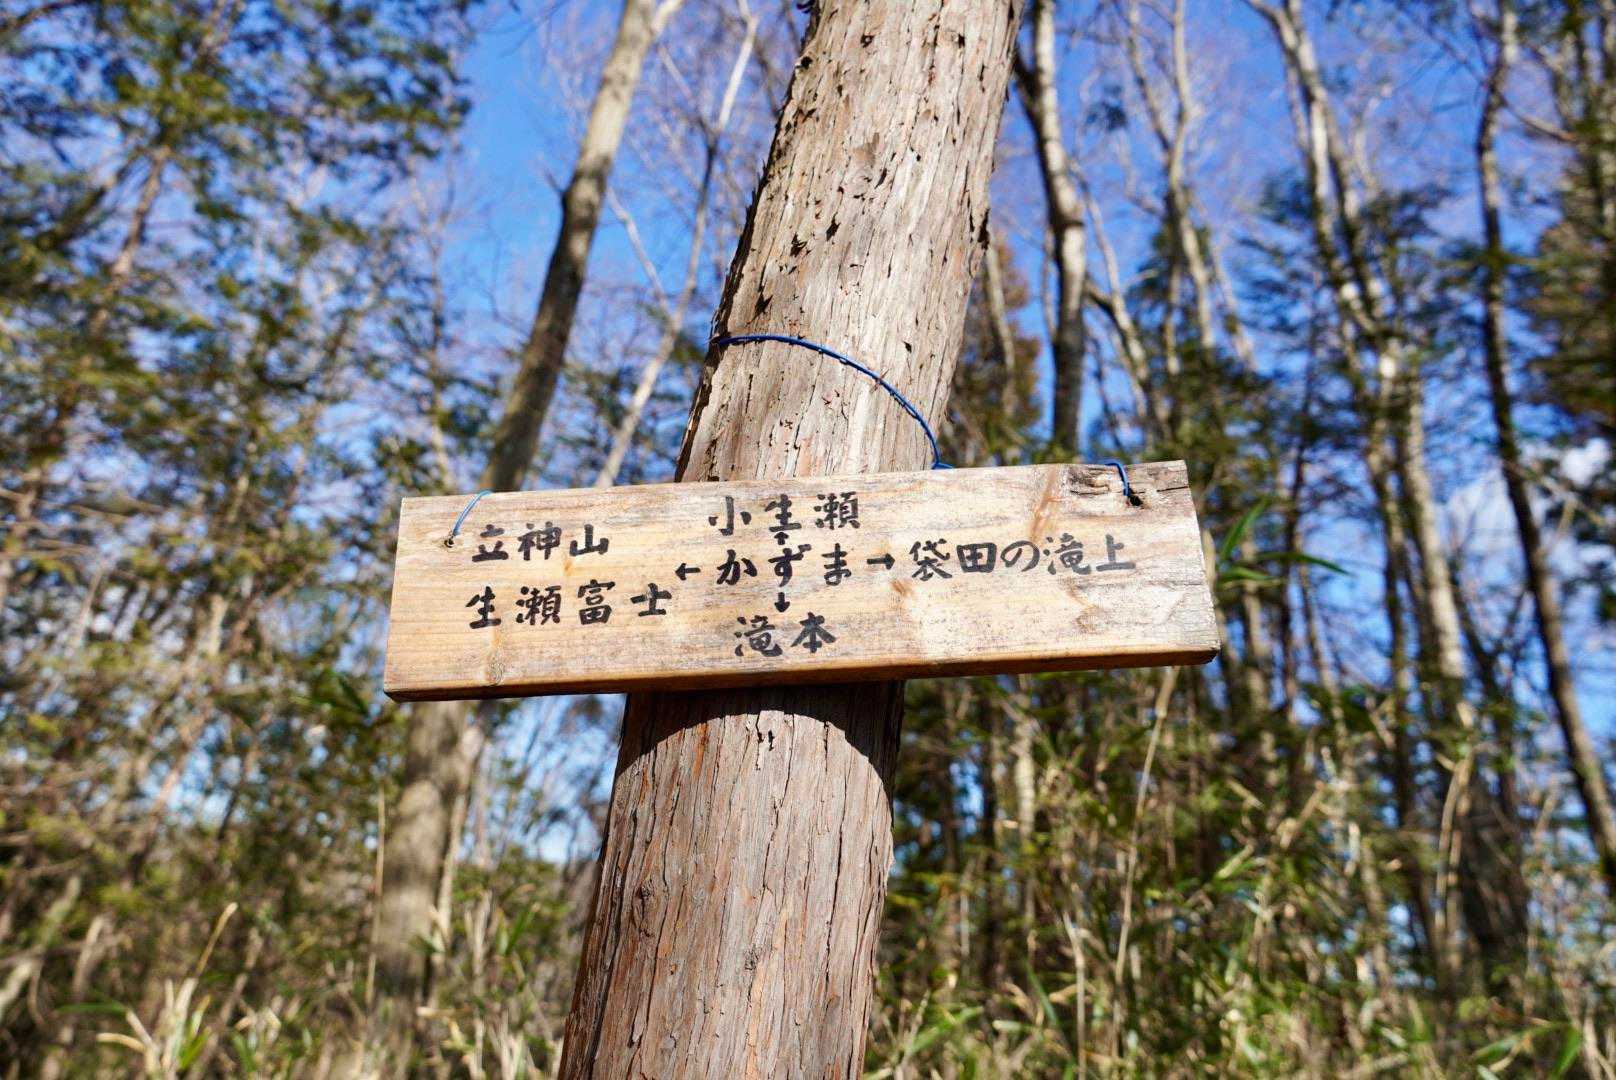 小生瀬
↑
立神山
生瀬富士
← かずま → 袋田の滝上
↓
滝本